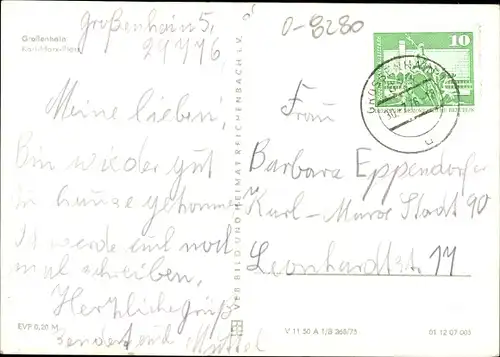 Großenhain
Karl-Marx-Platz
Großenhain 5,
29 7 76
O-8280
10
GROSSENHAIN 1
Meine lieben!
Bin wieder gut
zu hause gekommen
werde euch noch
mal schreiben,
Herzliche grüße
sendet euch Muttel
Frau
Barbara Eppendorfer
Karl-Marx Stadt 90
Leonhardtstr. 11
VEB BILD UND HEIMAT REICHENBACH I. V.
EVP 0,20 M
V 11 50 A 1/B 268/75
01 12 07 083